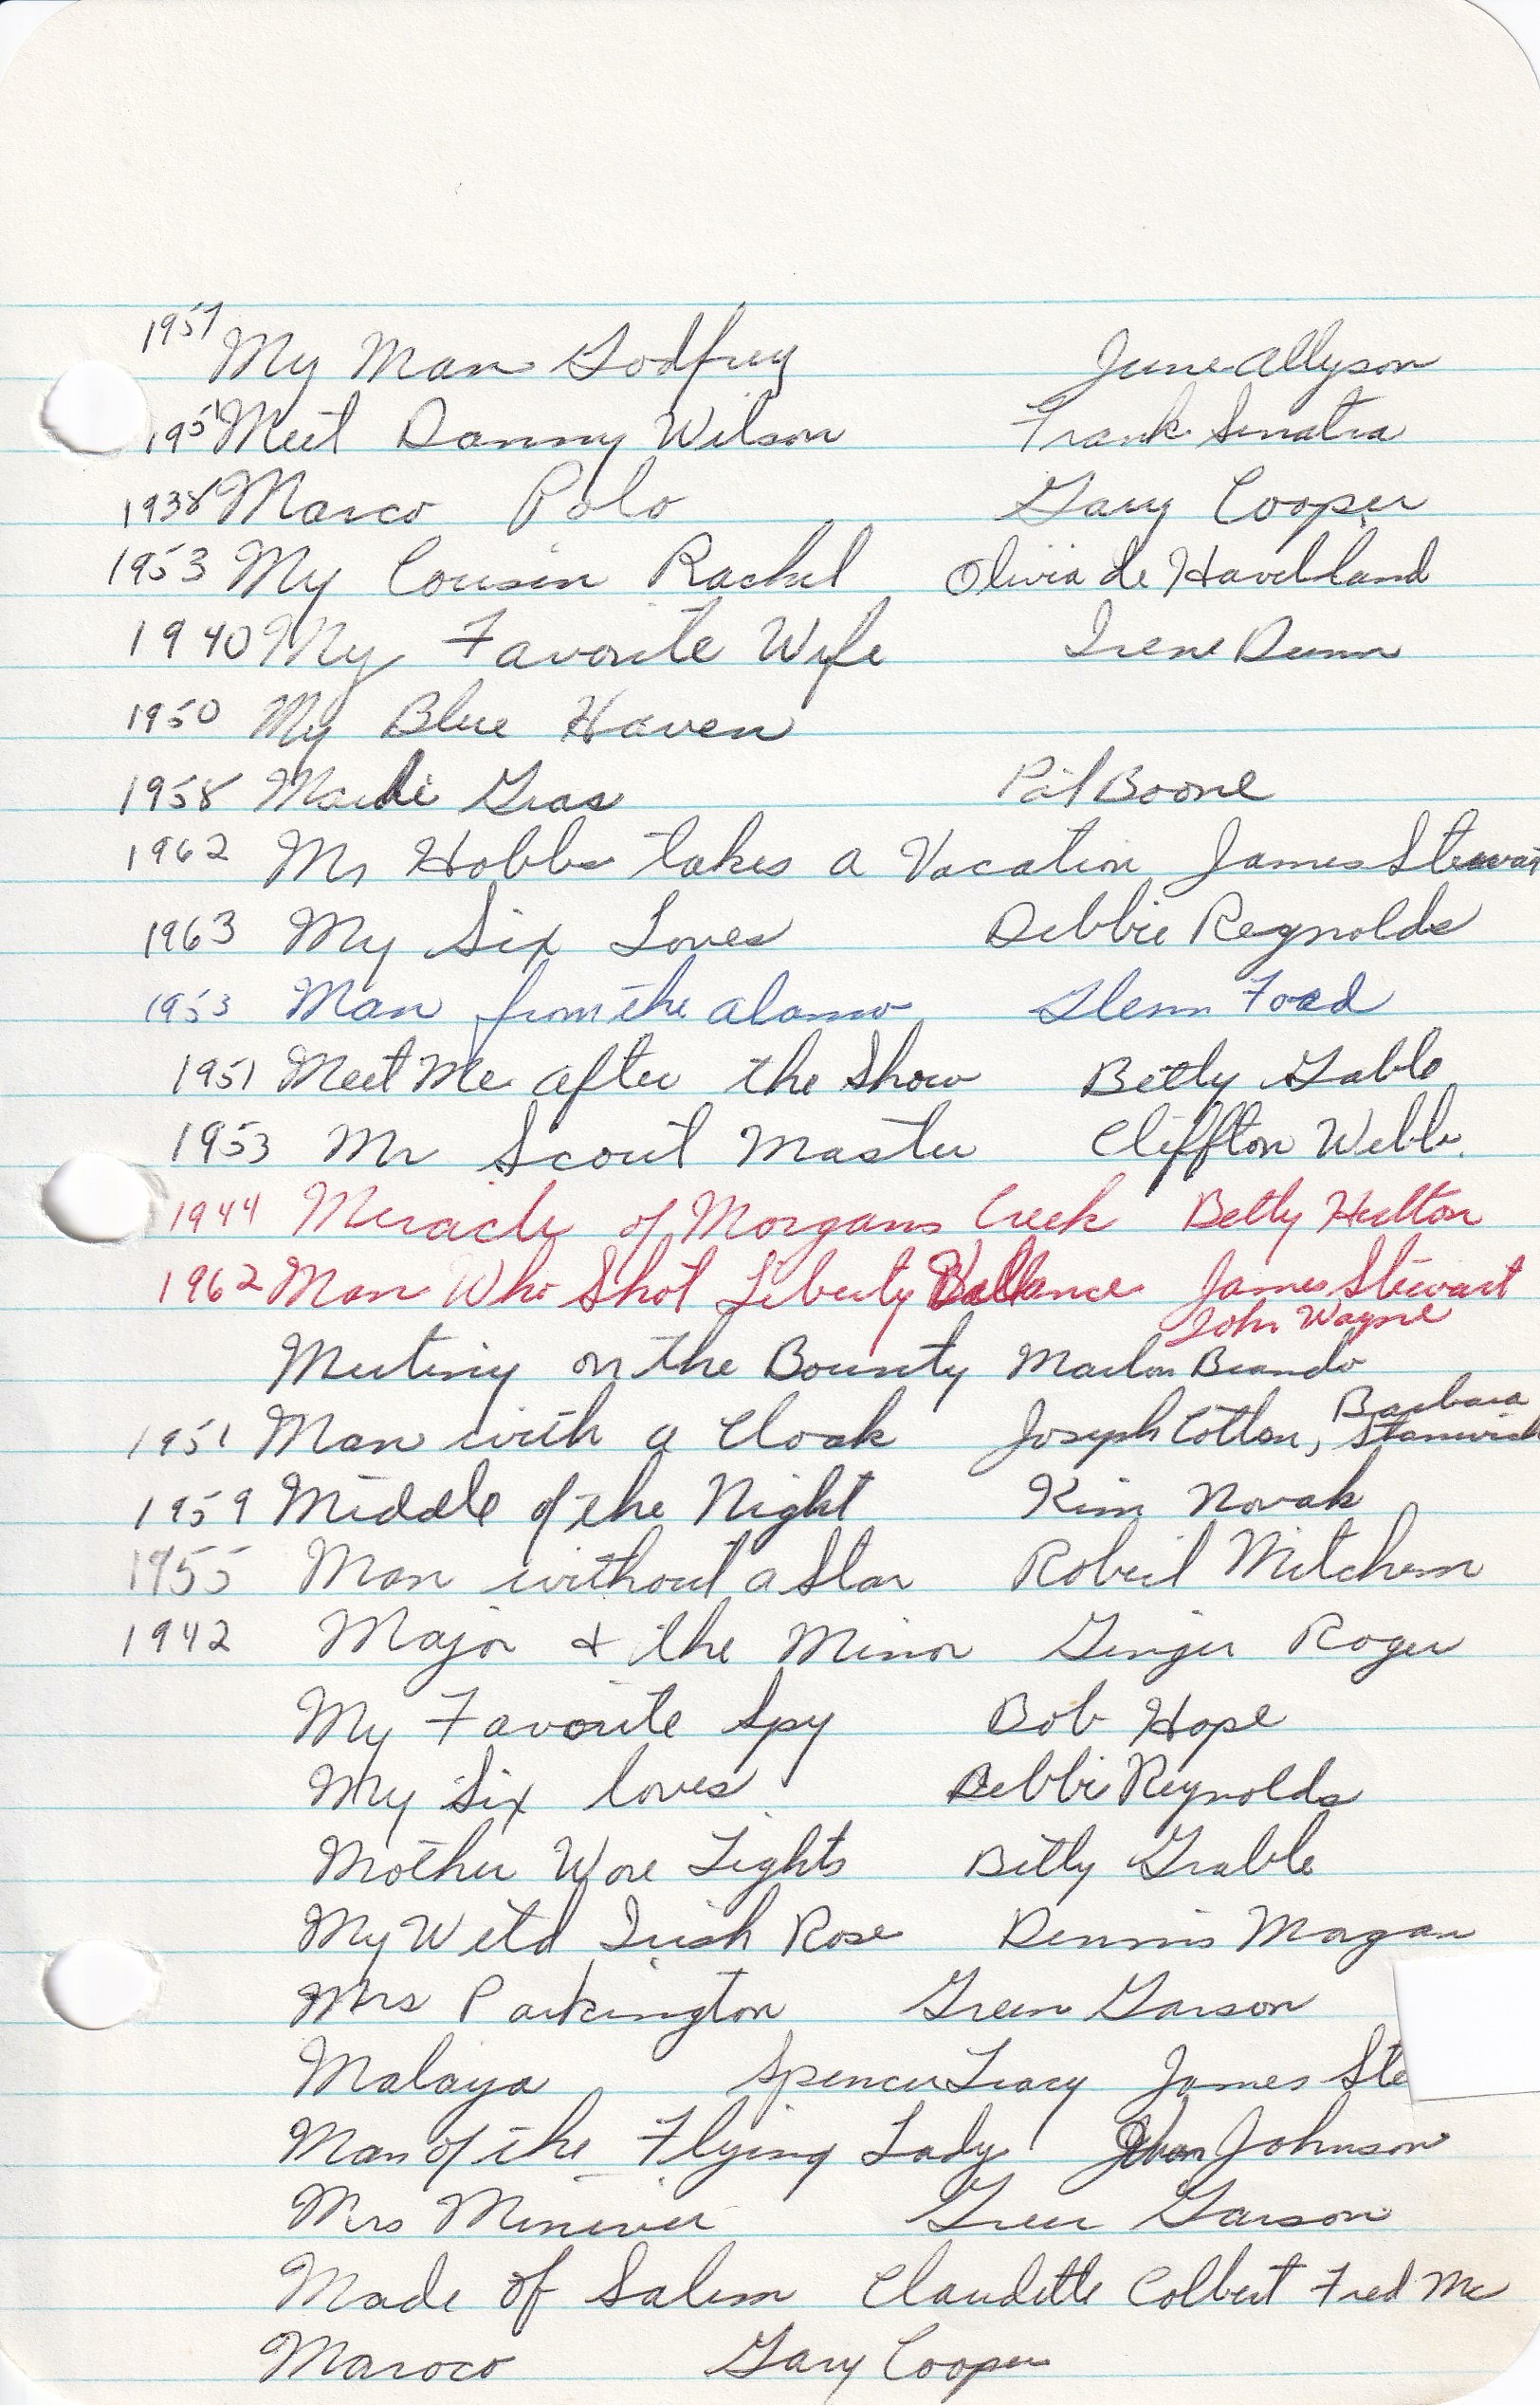 1957 My Man Godfrey June Allyson
1951 Meet Danny Wilson Frank Sinatra
1938 Marco Polo Gary Cooper
1953 My Cousin Rachel Olivia de Havilland
1940 My Favorite Wife Irene Dunn
1950 My Blue Haven
1958 Mardi Gras Pat Boone
1962 Mr Hobbs takes a Vacation James Stewart
1963 My Six Loves Debbie Reynolds
1953 Man from the Alamo Glenn Ford
1951 Meet Me after the Show Betty Gable
1953 Mr Scout Master Cliffton Webb
1944 Miracle of Morgans Creek Betty Hutton
1962 Man Who Shot Liberty Vallance James Stewart
John Wayne
Mutiny on the Bounty Marlon Brando
1951 Man with a Cloak Joseph Cotten, Barbara Stanwick
1959 Middle of the Night Kim Novak
1955 Man without a Star Robert Mitchem
1942 Major & the Minor Ginger Roger
My Favorite Spy Bob Hope
My Six loves Debbi Reynolds
Mother Wore Tights Betty Grable
My Wild Irish Rose Dennis Morgan
Mrs Parkington Green Garson
Malaya Spencer Tracy James Ste
Man of the Flying Lady Van Johnson
Mrs Miniver Greer Garson
Made of Salem Claudette Colbert Fred Mc
Maroco Gary Cooper